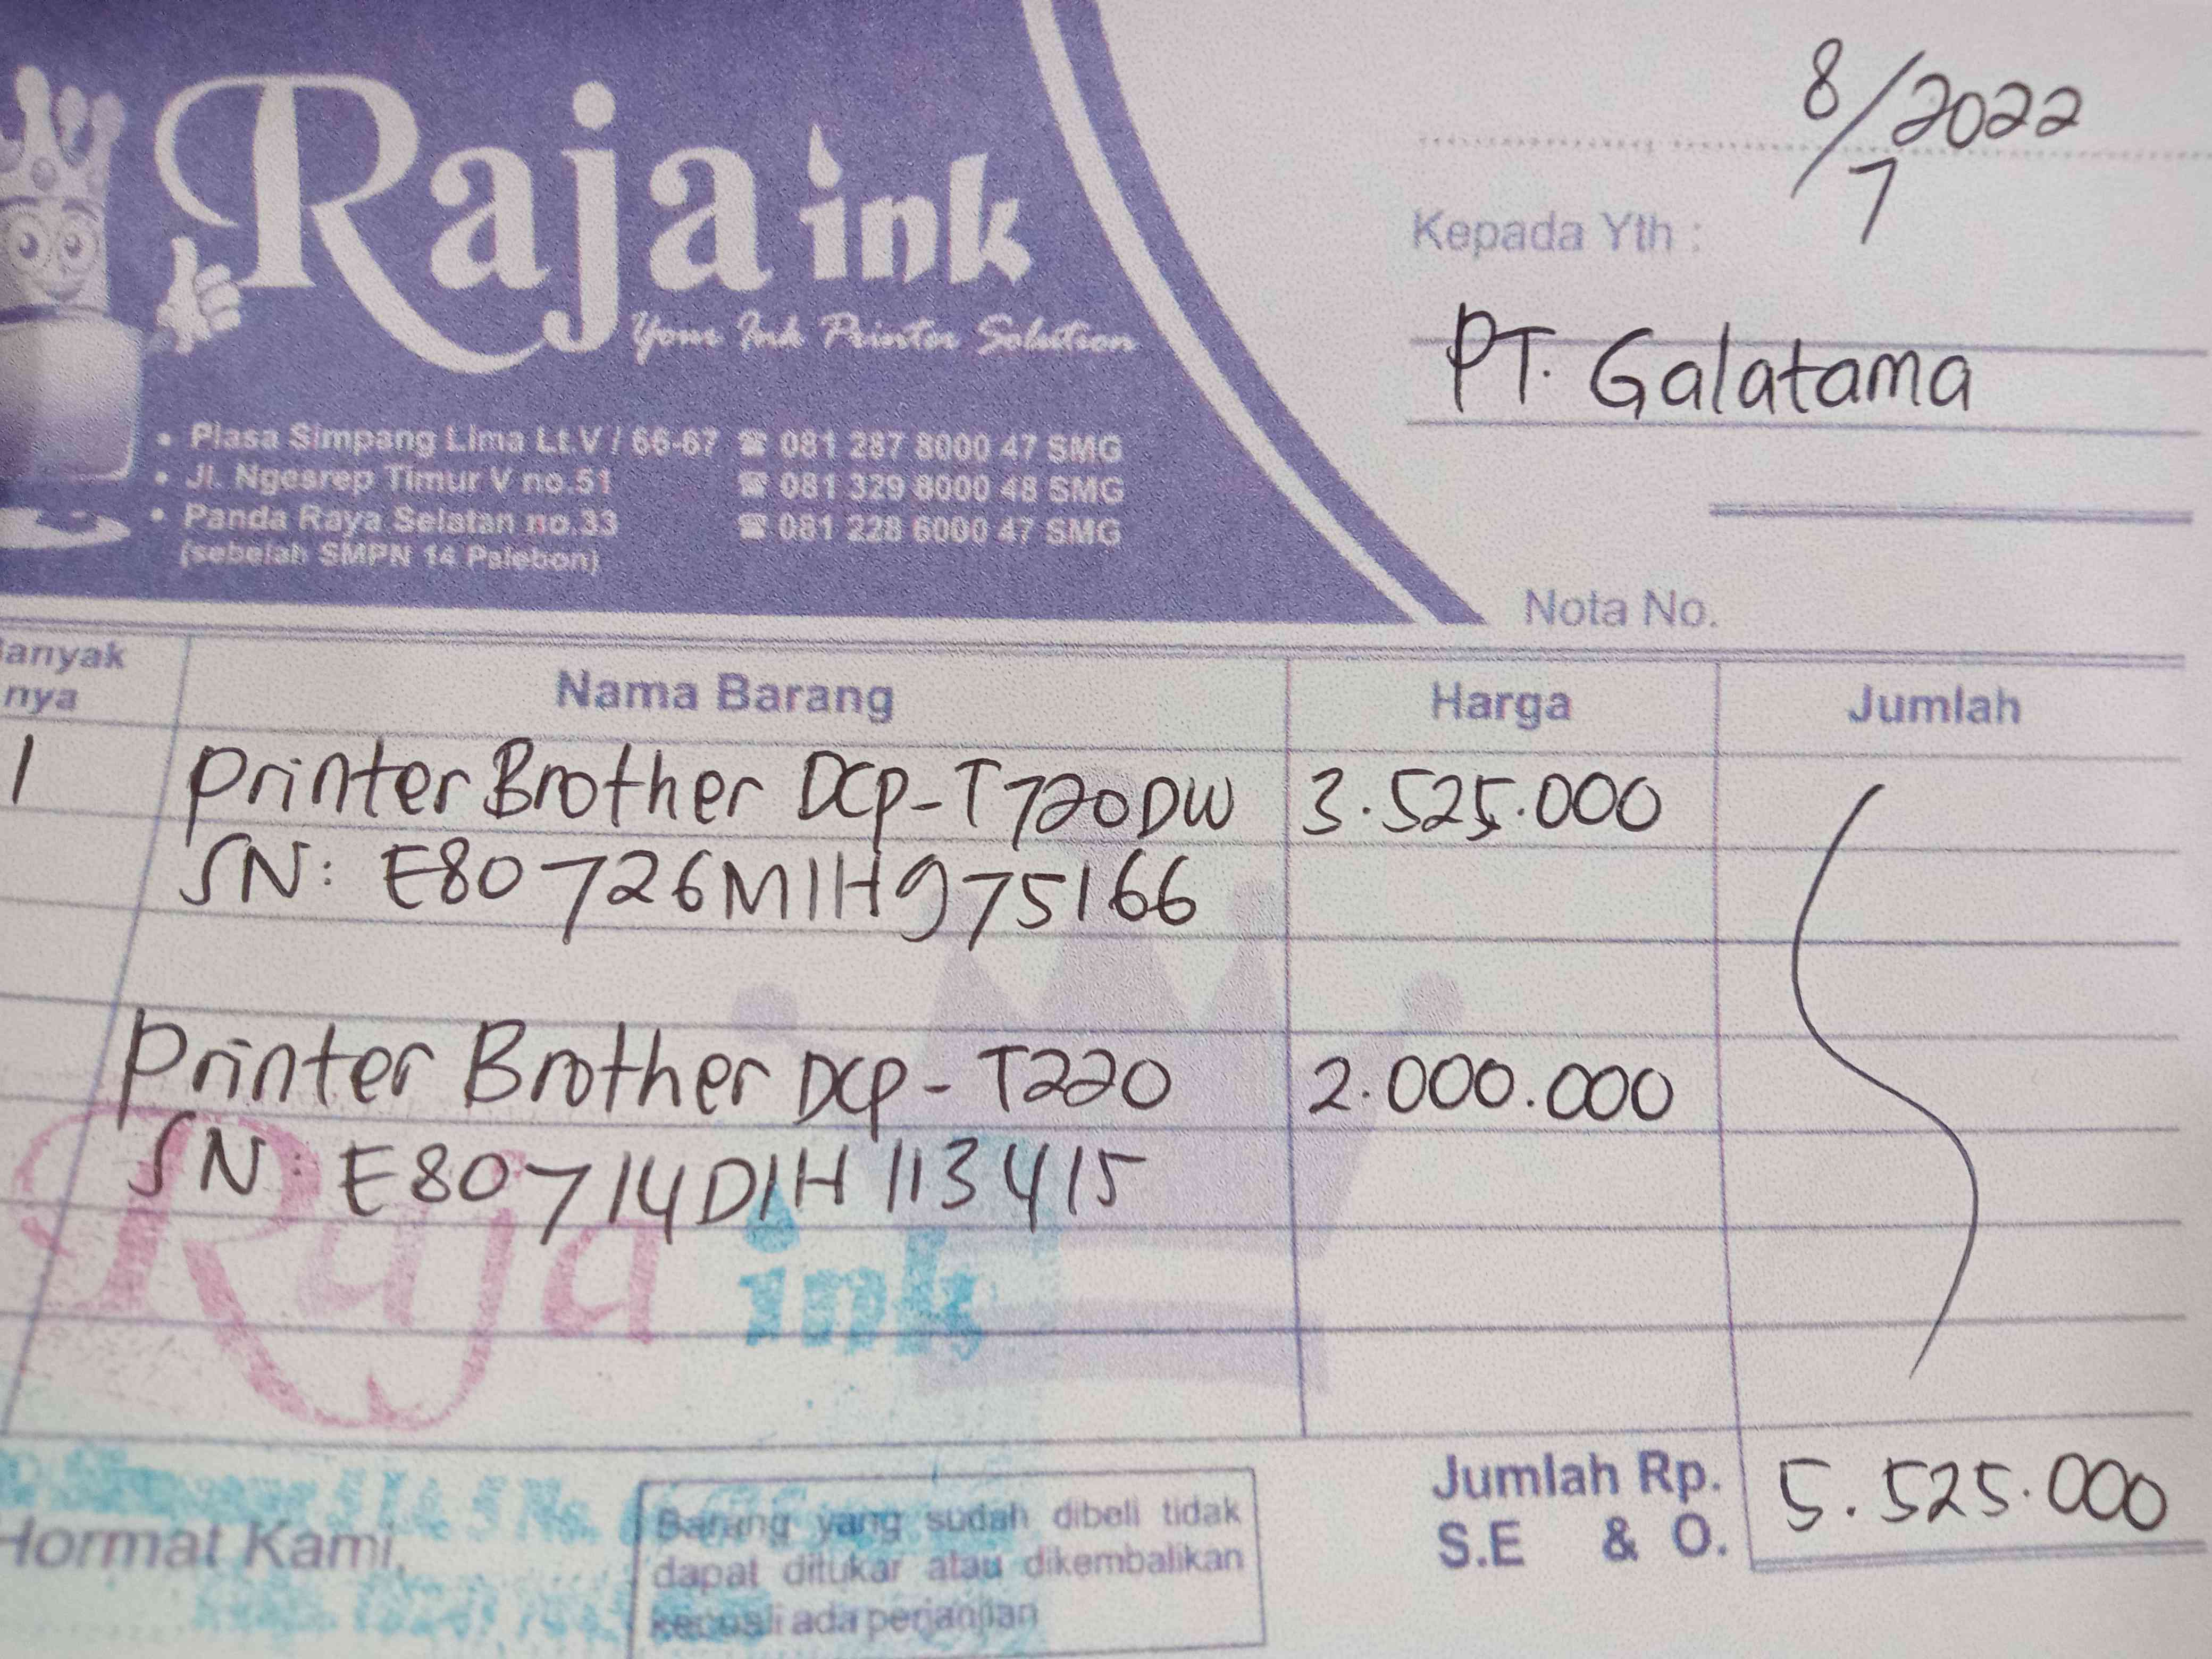 8/7 2022
Raja ink
Your Ink Printer Solution
Kepada Yth :
PT. Galatama
• Plasa Simpang Lima Lt.V / 66-67 ☎ 081 287 8000 47 SMG
• Jl. Ngesrep Timur V no.51 ☎ 081 329 8000 48 SMG
• Panda Raya Selatan no.33 ☎ 081 228 6000 47 SMG
(sebelah SMPN 14 Palebon)
Nota No.
Banyak
nya
Nama Barang Harga Jumlah
1 Printer Brother DCP-T720DW 3.525.000
SN: E80726M1H975166
Printer Brother DCP-T220 2.000.000
SN: E80714D1H113415
Raja ink
Jumlah Rp. 5.525.000
S.E & O.
Hormat Kami,
Barang yang sudah dibeli tidak
dapat ditukar atau dikembalikan
kecuali ada perjanjian